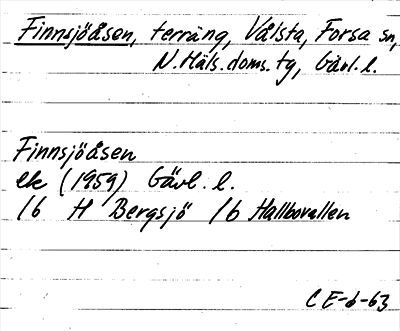 Finnsjöåsen, terräng, Vålsta, Forsa sn,
N. Häls. doms. tg, Gävl. l.
Finnsjöåsen
ek (1959) Gävl. l.
16 H Bergsjö 16 Hallbovallen
CE-6-63